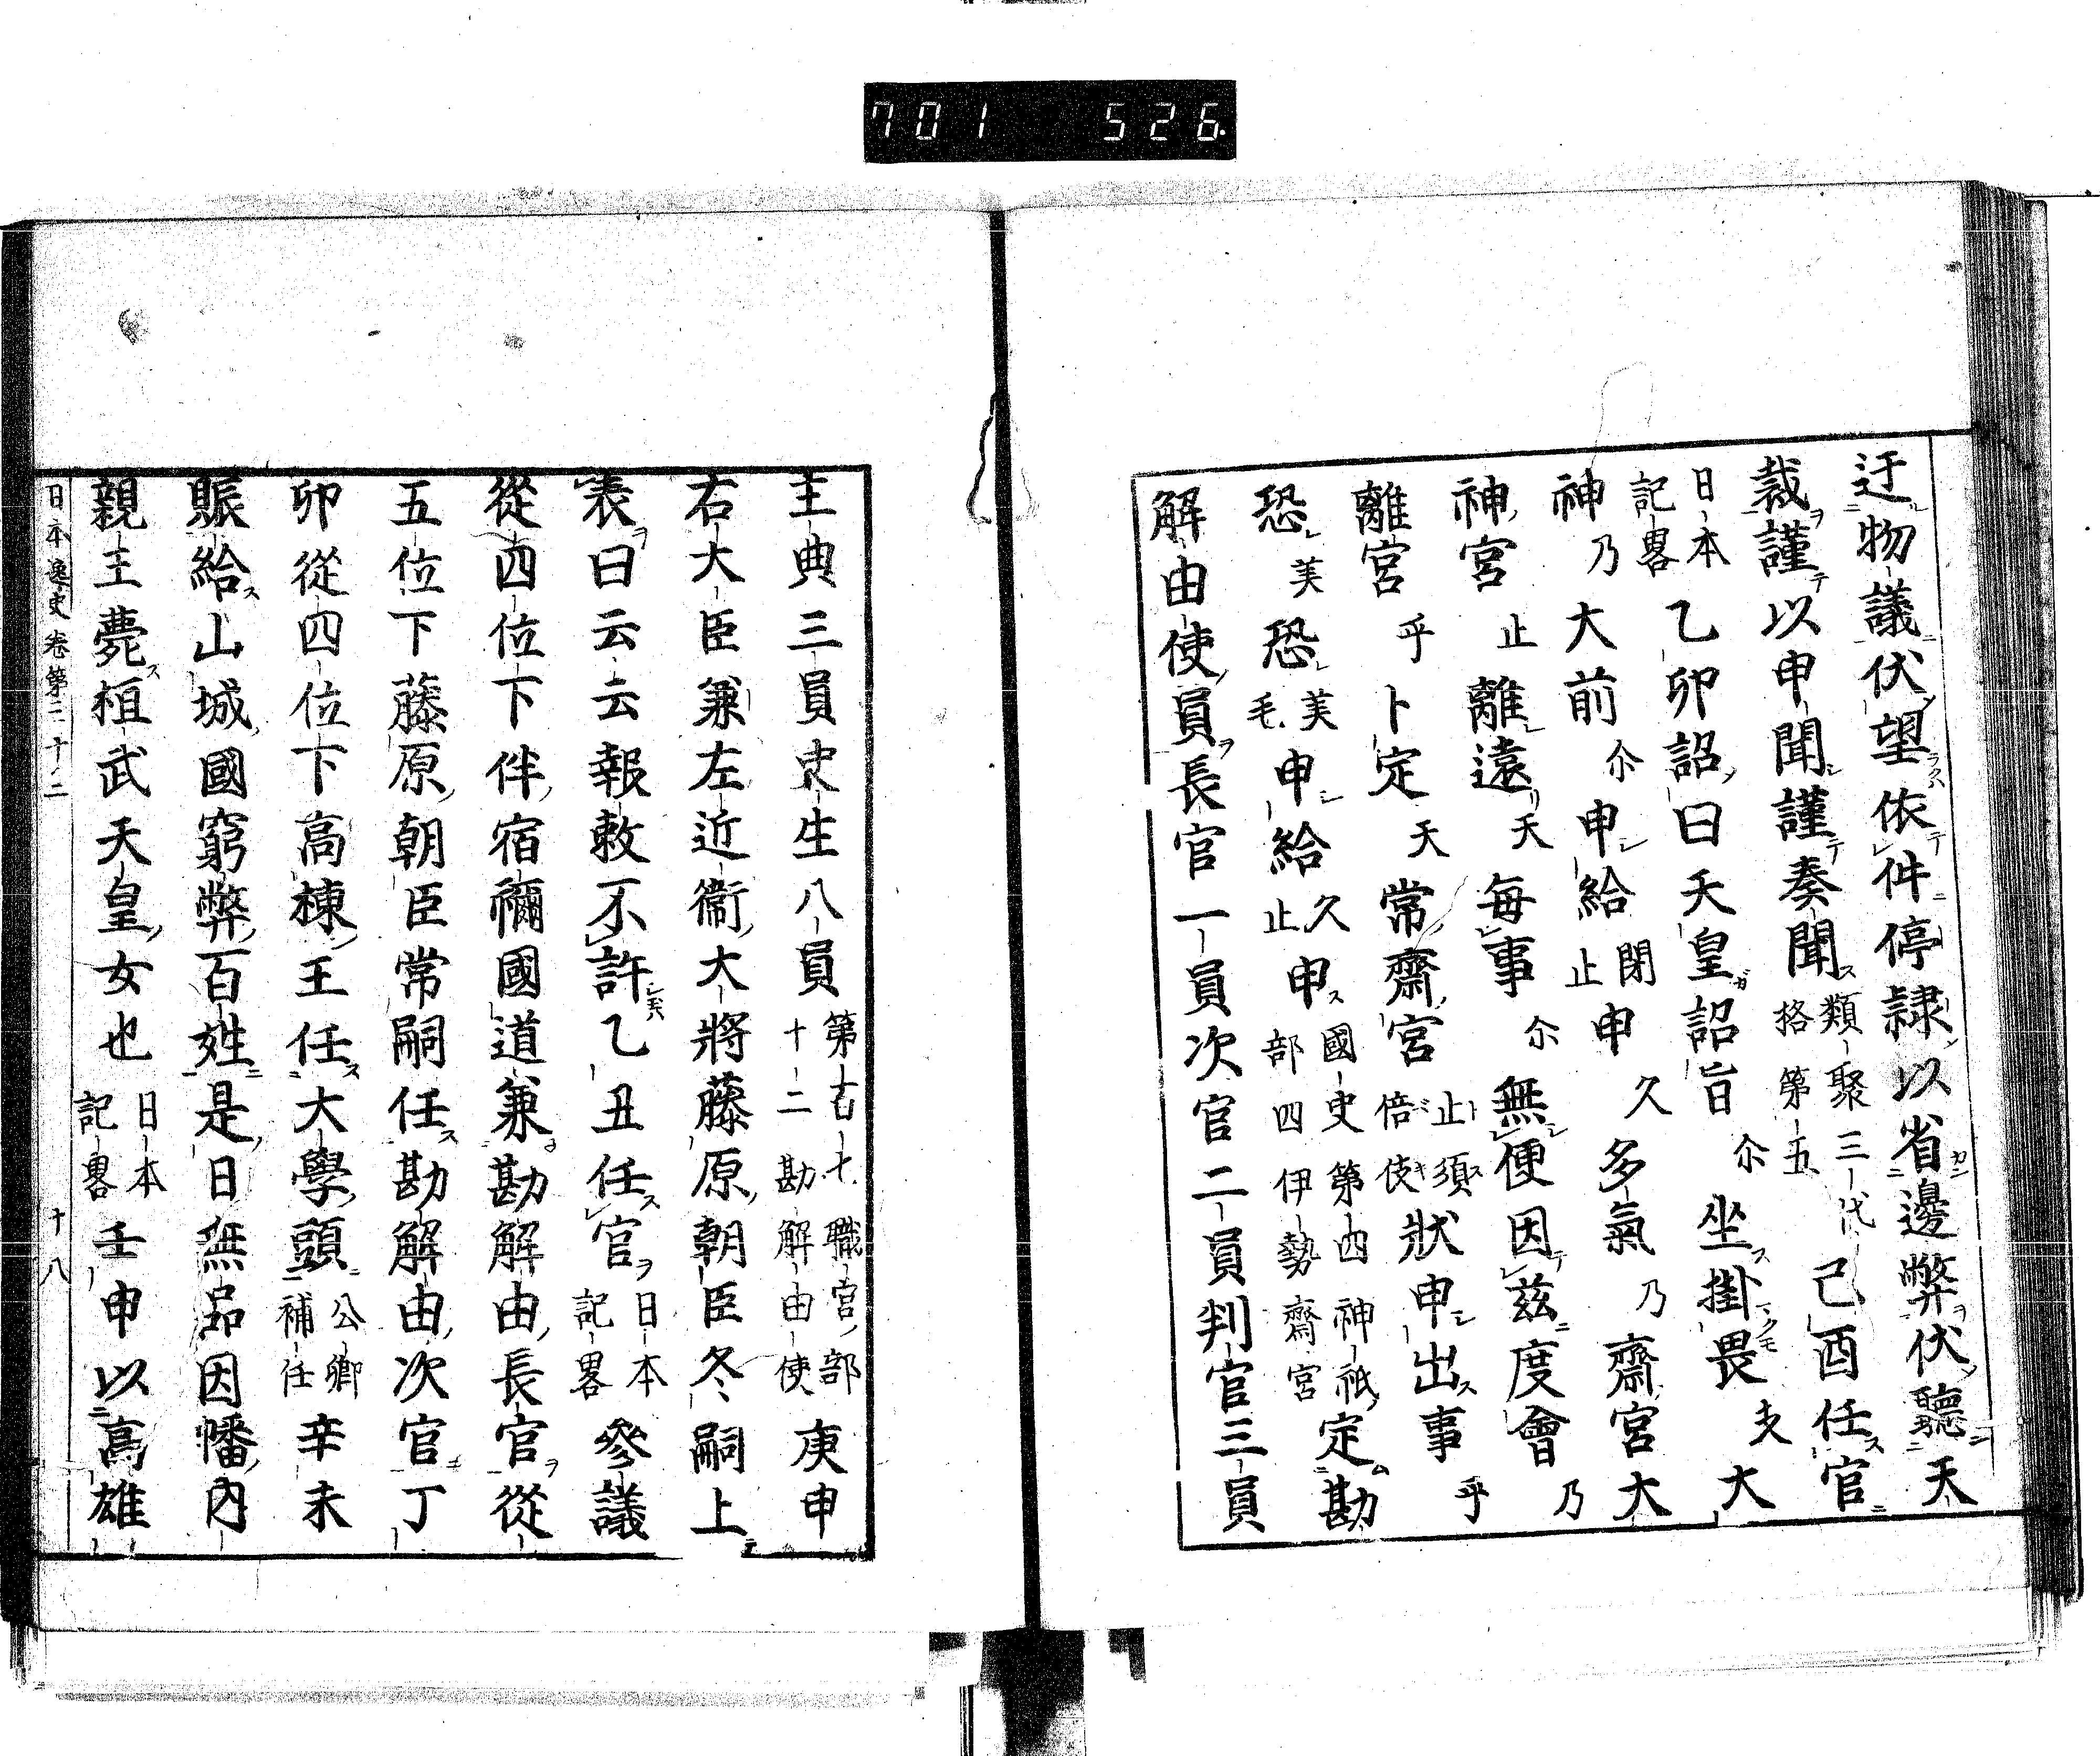 701 526
迂物議伏望依件停隷以省邊弊伏聽天
裁謹以申聞謹奏聞類聚三代格第五己酉任官
日本記畧乙卯詔曰天皇詔旨尓坐掛畏支大
神乃大前尓申給閇止申久多氣乃齋宮大
神宮止離遠天每事尓無便因茲度會乃
離宮乎卜定天常齋宮止須倍使狀申出事乎
恐美恐美毛申給久止申國史第四神祇部四伊勢齋宮定勘
解由使員長官一員次官二員判官三員
主典三員史生八員第百七職官部十二勘解由使庚申
右大臣兼左近衞大將藤原朝臣冬嗣上
表曰云云報敕不許乙丑任官日本記畧參議
從四位下伴宿禰國道兼勘解由長官從
五位下藤原朝臣常嗣任勘解由次官丁
卯從四位下高棟王任大學頭公卿補任辛未
賑給山城國窮弊百姓是日無品因幡內
親王薨桓武天皇女也日本記畧壬申以高雄
日本逸史卷第三十二 十八